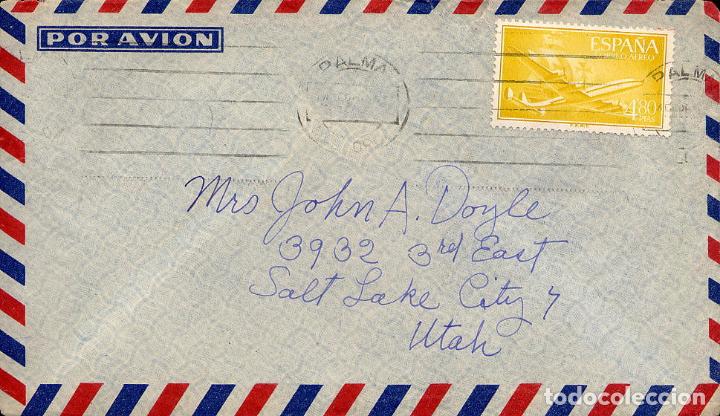 POR AVION
PALMA
ESPAÑA
CORREO AEREO
4'80
PTAS
PALMA
Mrs John A. Doyle
3932 3rd East
Salt Lake City 7
Utah
todocoleccion